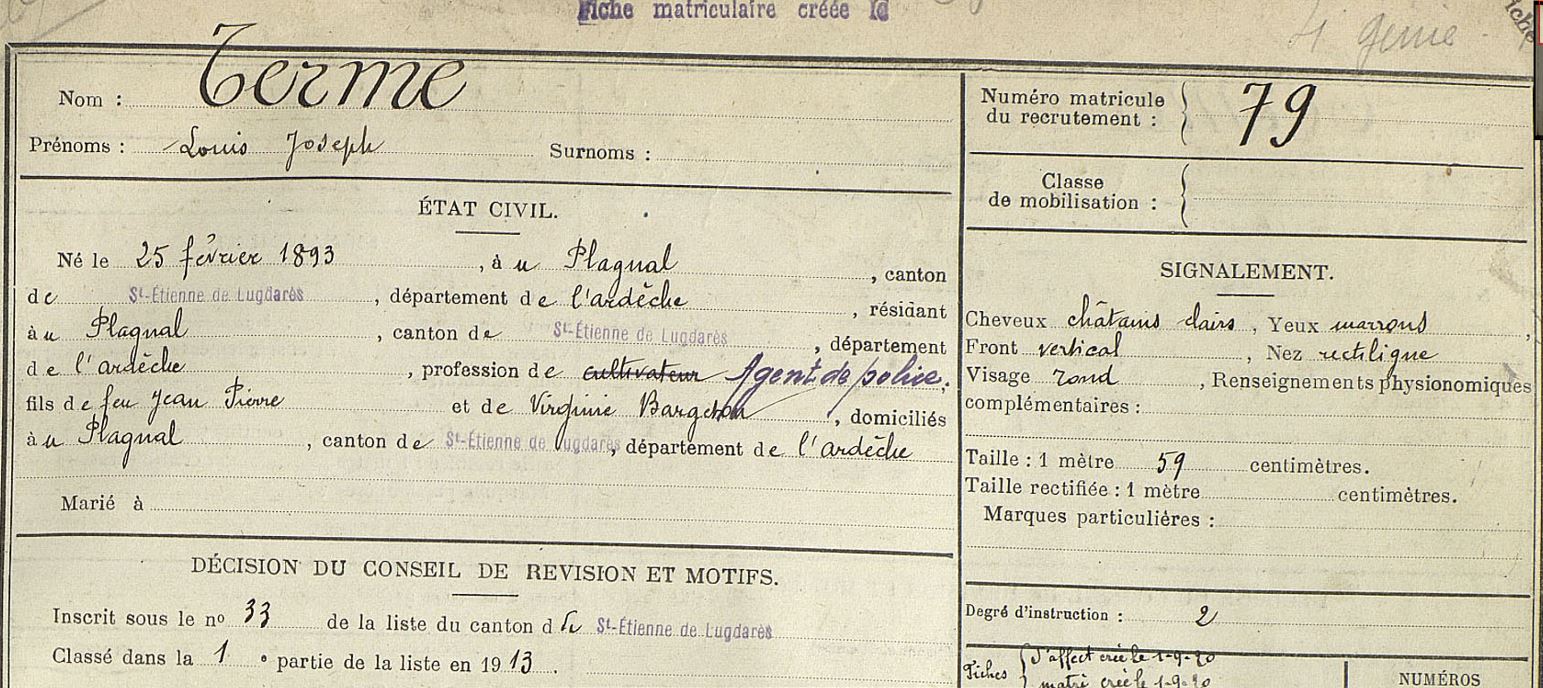 Fiche matriculaire créée
4 génie
Nom : Terme
Prénoms : Louis Joseph Surnoms :
Numéro matricule
du recrutement : 79
Classe
de mobilisation :
ÉTAT CIVIL.
Né le 25 février 1893, à u Plagnal, canton
de St-Étienne de Lugdarès, département de l'ardèche, résidant
à u Plagnal, canton de St-Étienne de Lugdarès, département
de l'ardèche, profession de cultivateur Agent de police,
fils de feu Jean Pierre et de Virginie Bargeton, domiciliés
à u Plagnal, canton de St-Étienne de Lugdarès, département de l'ardèche
Marié à
SIGNALEMENT.
Cheveux châtains clairs, Yeux marrons,
Front vertical, Nez rectiligne
Visage rond, Renseignements physionomiques
complémentaires :
Taille : 1 mètre 59 centimètres.
Taille rectifiée : 1 mètre centimètres.
Marques particulières :
DÉCISION DU CONSEIL DE REVISION ET MOTIFS.
Inscrit sous le no 33 de la liste du canton d de St-Étienne de Lugdarès
Classé dans la 1e partie de la liste en 1913.
Degré d'instruction : 2
Fiches { d'affect créé le 1-9-20
matri créé le 1-9-20
NUMÉROS